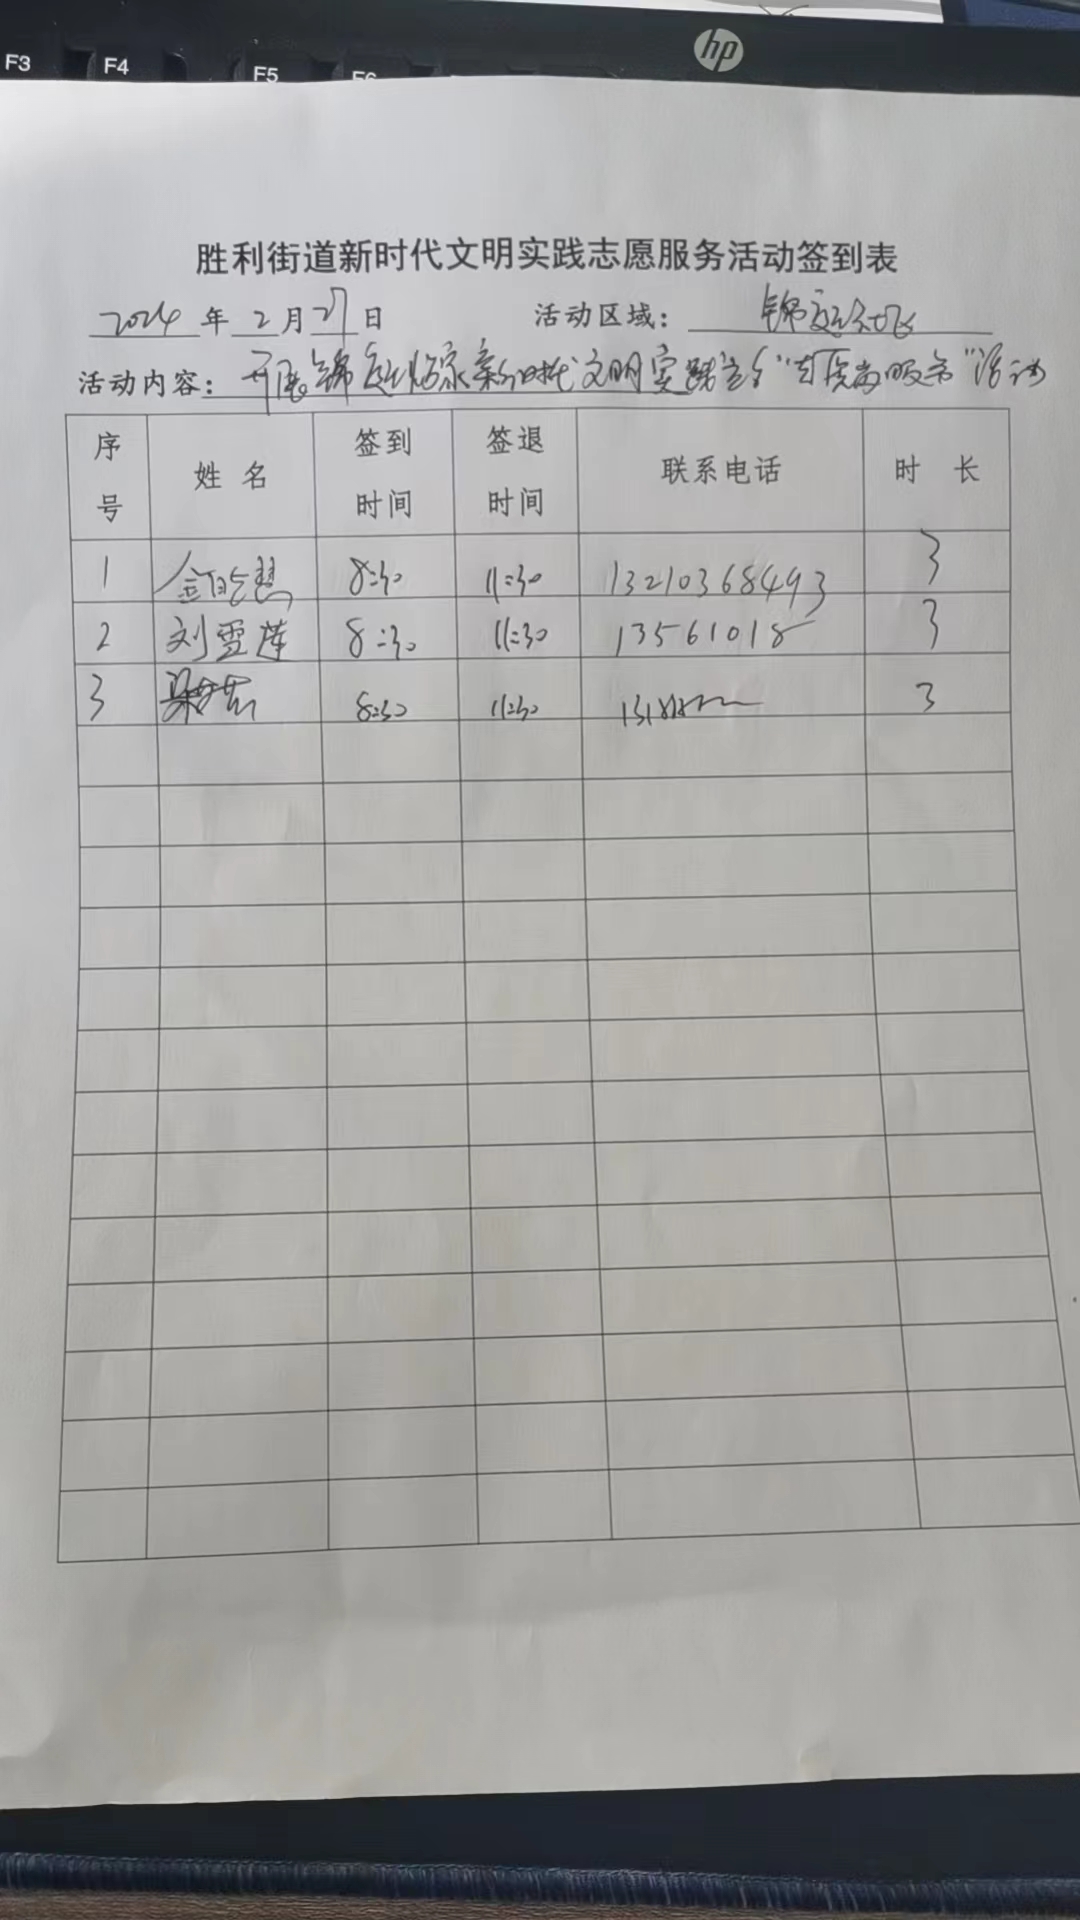 F3 F4 F5 F6 hp
胜利街道新时代文明实践志愿服务活动签到表
2024 年 2 月 27 日 活动区域： 锦
活动内容： 开展锦 家新时代文明实践 服务"活动
序号 姓 名 签到时间 签退时间 联系电话 时 长
1 金晗慧 8:30 11:30 13210368493 3
2 刘雪莲 8:30 11:30 13561018 3
3 梁 8:30 11:30 3